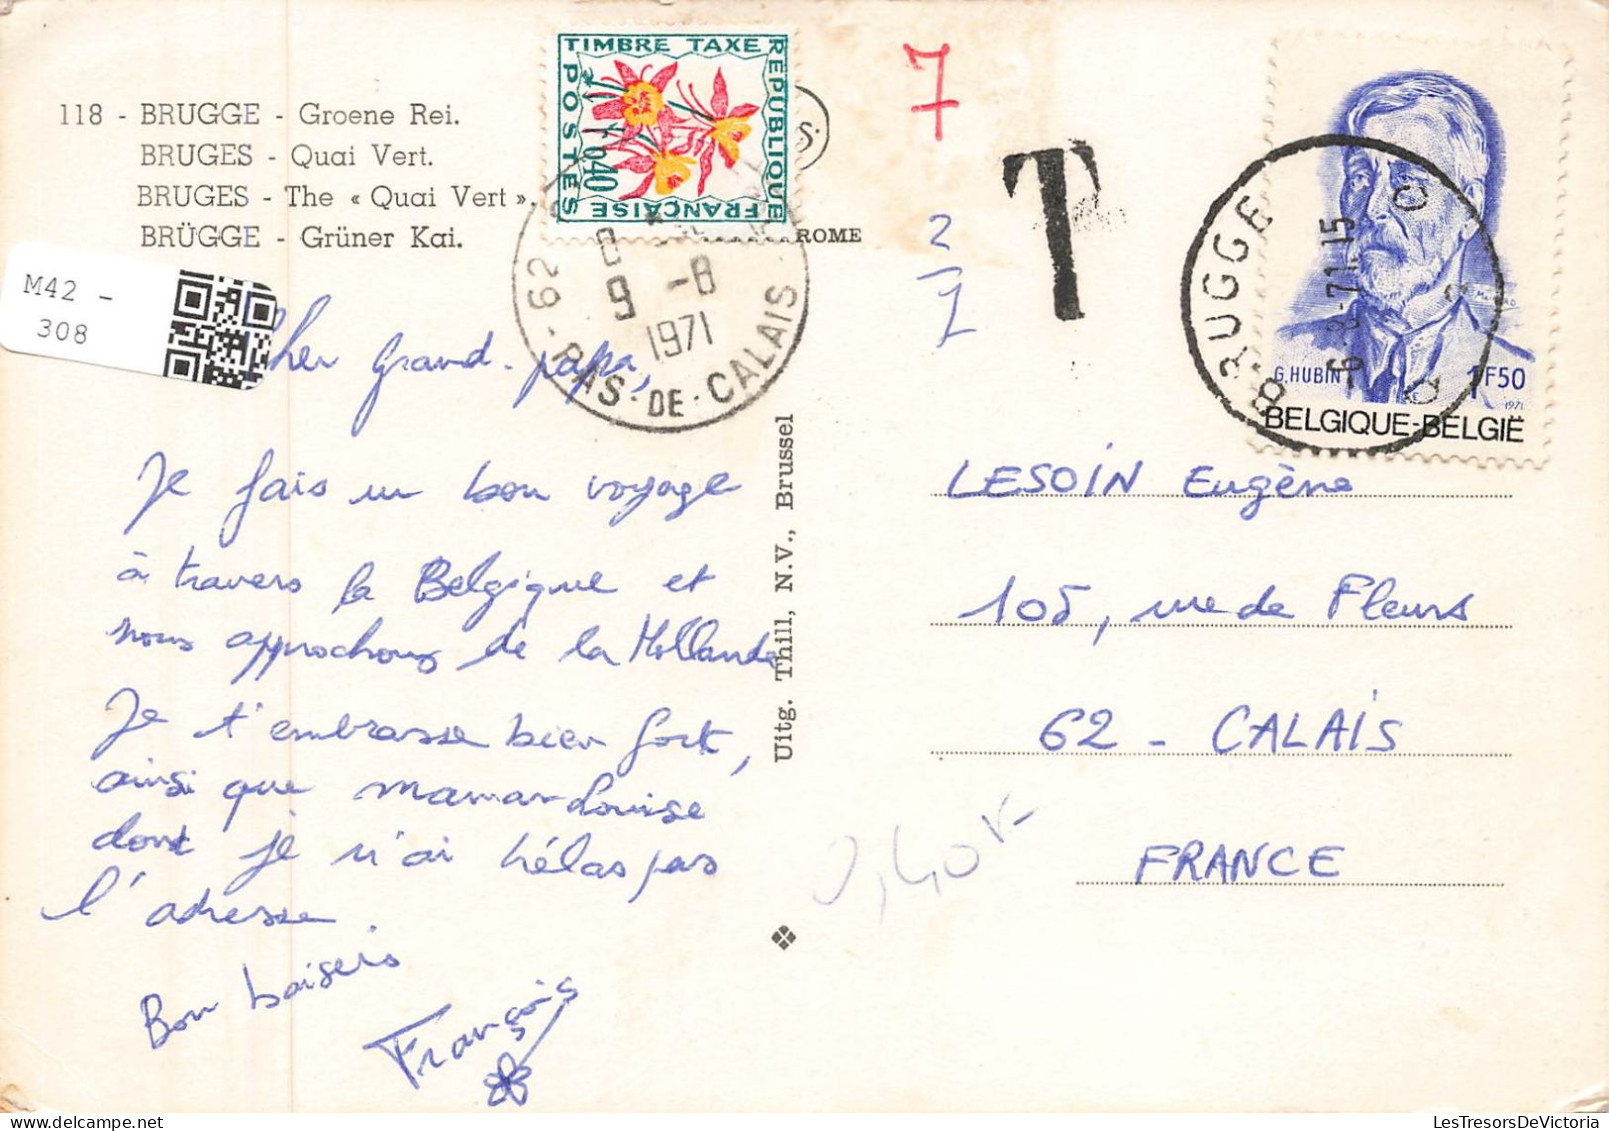 118 - BRUGGE - Groene Rei.
BRUGES - Quai Vert.
BRUGES - The « Quai Vert ».
BRÜGGE - Grüner Kai.
M42 -
308
TIMBRE TAXE
REPUBLIQUE
FRANÇAISE
POSTES
0,40
ROME
62 - PAS-DE-CALAIS
9 -8
1971
7
2
T
BRUGGE
-6.-8-71.15
G.HUBIN
1F50
1971
BELGIQUE-BELGIË
Cher grand-papa,
Je fais un bon voyage
à travers la Belgique et
nous approchons de la Hollande
Je t'embrasse bien fort,
ainsi que maman Louise
dont je n'ai hélas pas
l'adresse.
Bon baisers
François
Uitg. Thill, N.V., Brussel
LESOIN Eugène
105, rue de Fleurs
62 - CALAIS
FRANCE
0,40
LesTresorsDeVictoria.com